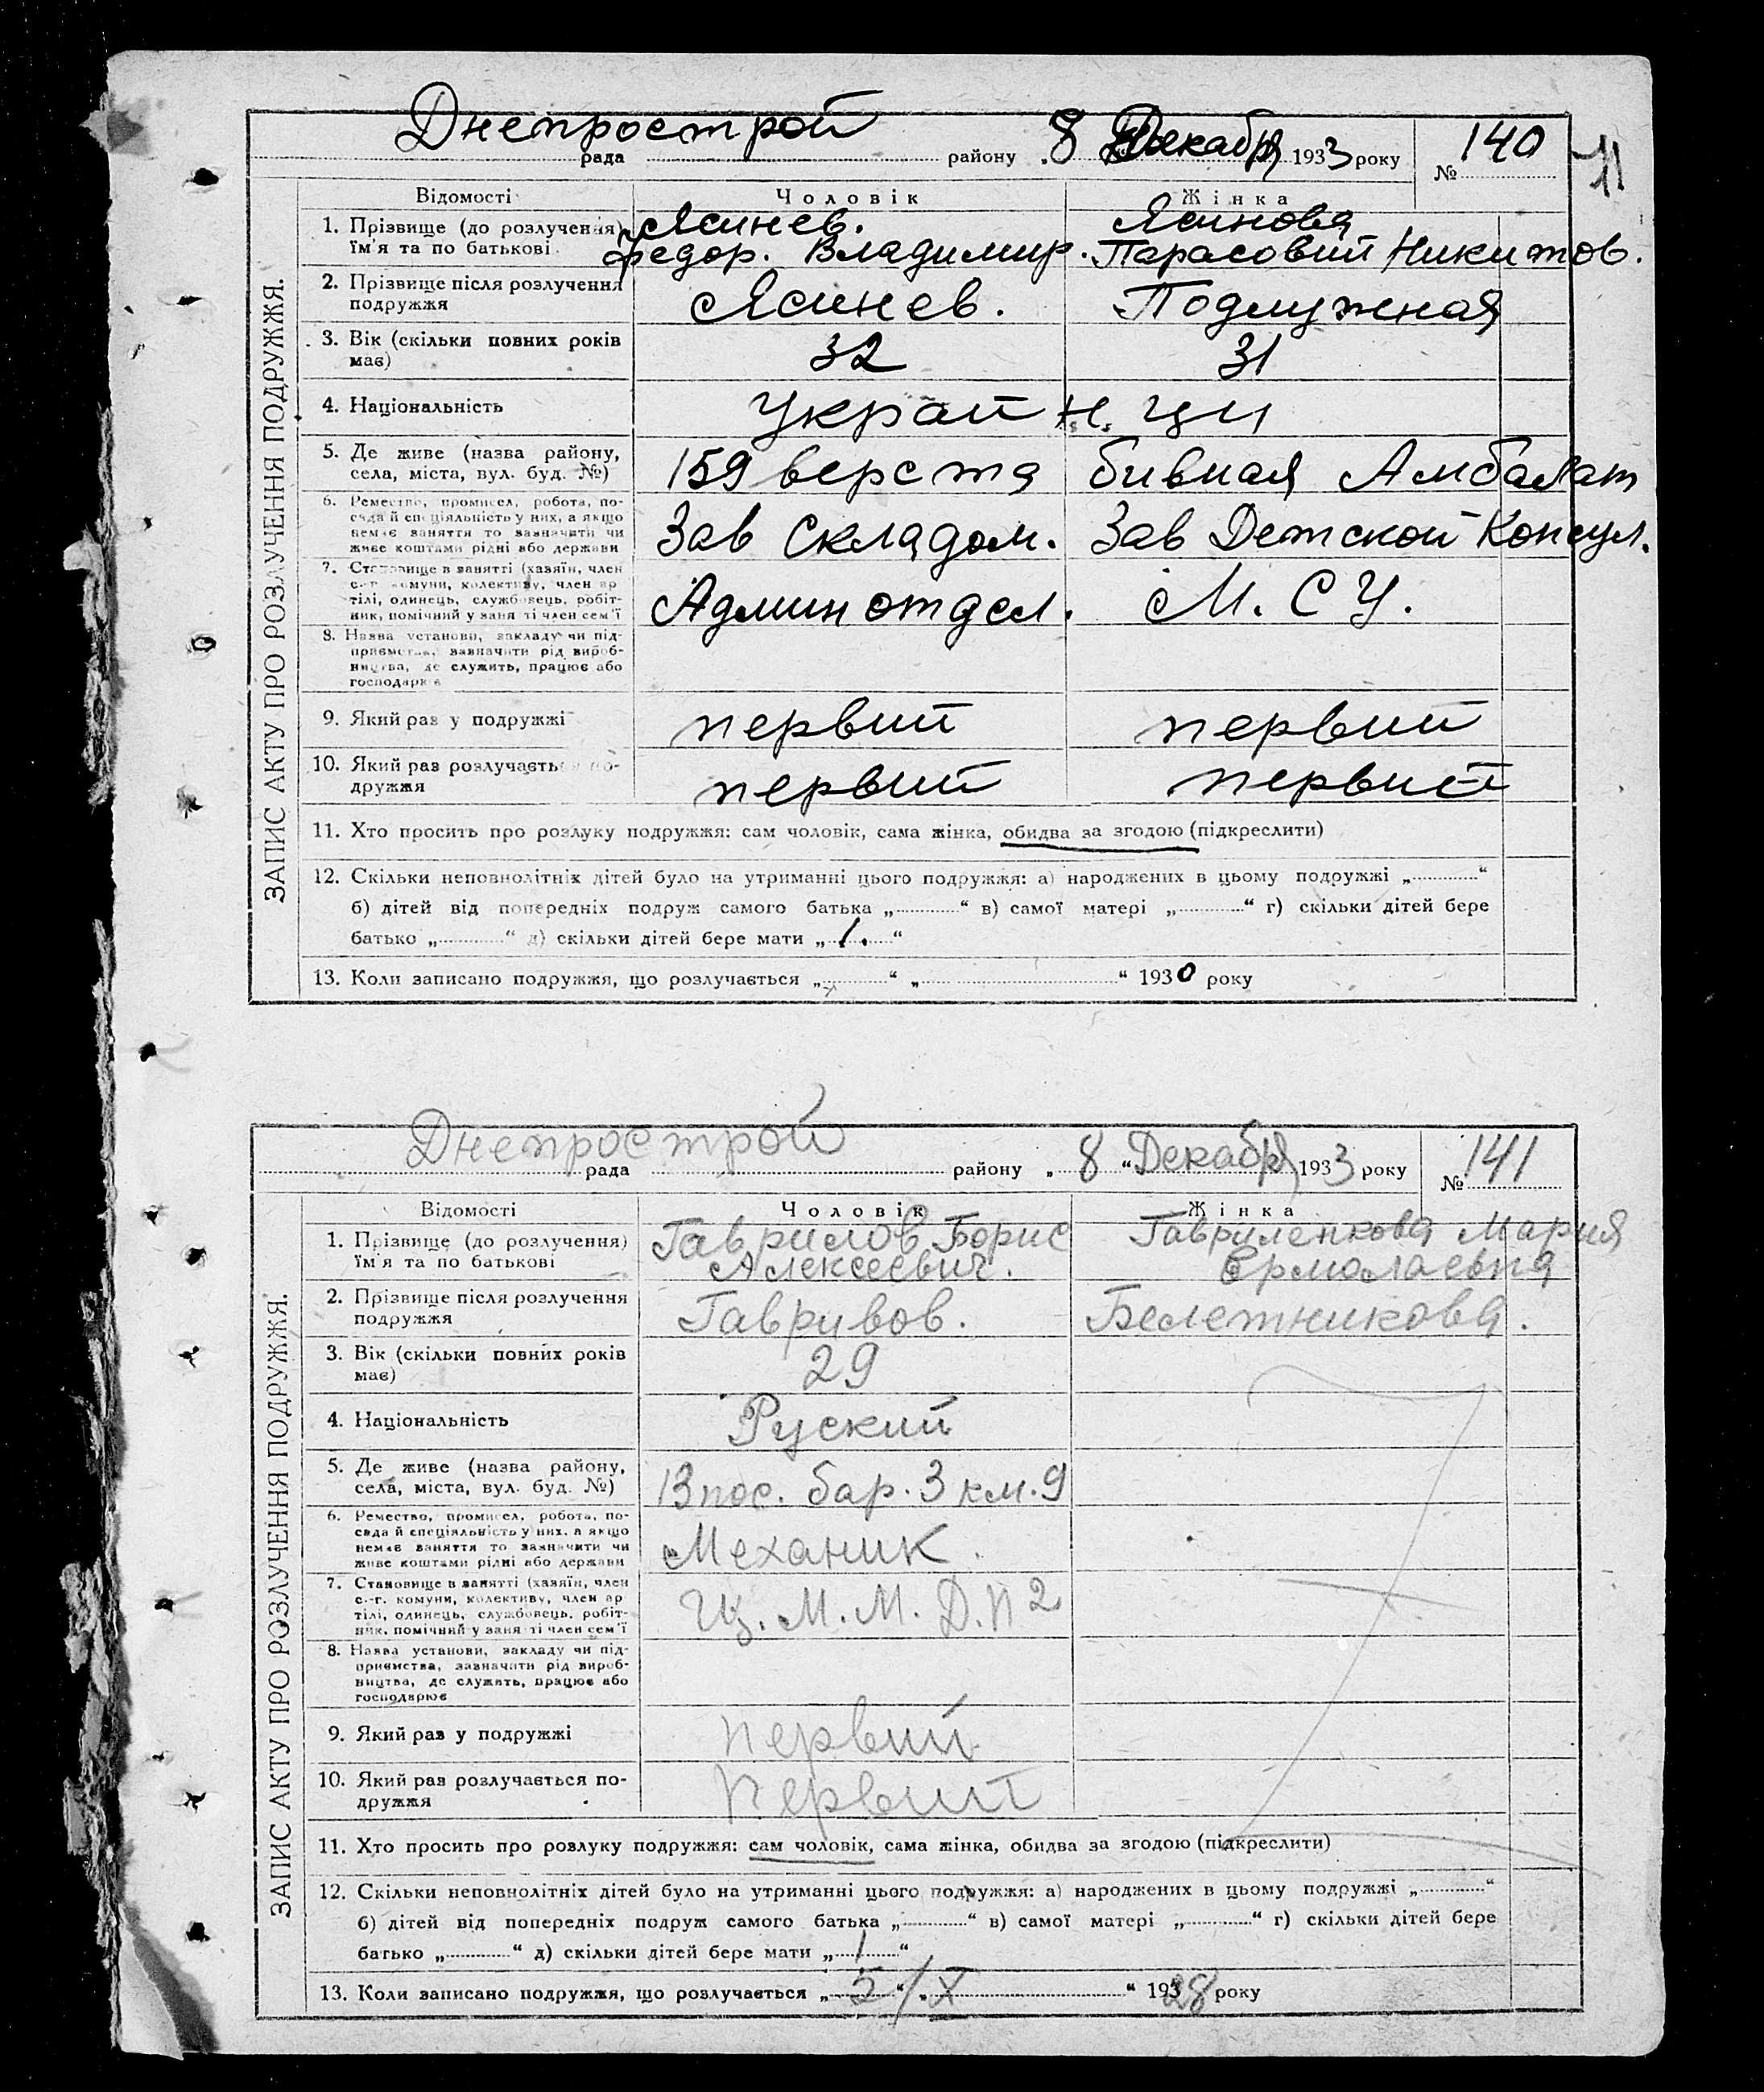 Днепрострой
рада района „8“ Декабря 1933 року № 140
11
ЗАПИС АКТУ ПРО РОЗЛУЧЕННЯ ПОДРУЖЖЯ.
Відомості Чоловік Жінка
1. Прізвище (до розлучення) Ясинев. Ясинова
їм'я та по батькові Федор. Владимир. Парасовий Никитов.
2. Прізвище після розлучення
подружжя Ясинев. Подлужная
3. Вік (скільки повних років
має) 32 31
4. Національність Украйнци
5. Де живе (назва району,
села, міста, вул. буд. №) 159 верста бивная Амбалат
6. Ремество, промисел, робота, по-
сада й спеціяльність у них, а якщо
немає заняття то зазначити чи
живе коштами рідні або держави Зав Складом. Зав Детской Консул.
7. Становище в занятті (хазяїн, член
с.-г. комуни, колективу, член ар
тілі, одинець, службовець, робіт-
ник, помічний у занятті член сем'ї Админ отдел. М. С У.
8. Назва установи, закладу чи під-
приємства, зазначити рід вироб-
ництва, де служить, працює або
господарює
9. Який раз у подружжі первий первий
10. Який раз розлучається по-
дружжя первий первий
11. Хто просить про розлуку подружжя: сам чоловік, сама жінка, обидва за згодою (підкреслити)
12. Скільки неповнолітніх дітей було на утриманні цього подружжя: а) народжених в цьому подружжі „ “
б) дітей від попередніх подруж самого батька „ “ в) самої матері „ “ г) скільки дітей бере
батько „ “ д) скільки дітей бере мати „1.“
13. Коли записано подружжя, що розлучається „ “ „ “ 1930 року
Днепрострой
рада району „8“ Декабря 1933 року № 141
ЗАПИС АКТУ ПРО РОЗЛУЧЕННЯ ПОДРУЖЖЯ.
Відомості Чоловік Жінка
1. Прізвище (до розлучення) Гаврилов Борис Гавриленкова Мария
їм'я та по батькові Алексеевич. Ермолаевна
2. Прізвище після розлучення
подружжя Гавривов. Белетникова.
3. Вік (скільки повних років
має) 29
4. Національність Руский
5. Де живе (назва району,
села, міста, вул. буд. №) 13 пос. бар. 3 км. 9
6. Ремество, промисел, робота, по-
сада й спеціяльність у них, а якщо
немає заняття то зазначити чи
живе коштами рідні або держави Механик.
7. Становище в занятті (хазяїн, член
с.-г. комуни, колективу, член ар
тілі, одинець, службовець, робіт-
ник, помічний у занятті член сем'ї Ц. М. М. Д. П 2
8. Назва установи, закладу чи під-
приємства, зазначити рід вироб-
ництва, де служить, працює або
господарює
9. Який раз у подружжі первий
10. Який раз розлучається по-
дружжя первий
11. Хто просить про розлуку подружжя: сам чоловік, сама жінка, обидва за згодою (підкреслити)
12. Скільки неповнолітніх дітей було на утриманні цього подружжя: а) народжених в цьому подружжі „ “
б) дітей від попередніх подруж самого батька „ “ в) самої матері „ “ г) скільки дітей бере
батько „ “ д) скільки дітей бере мати „1“
13. Коли записано подружжя, що розлучається „5“/„X“ 1928 року